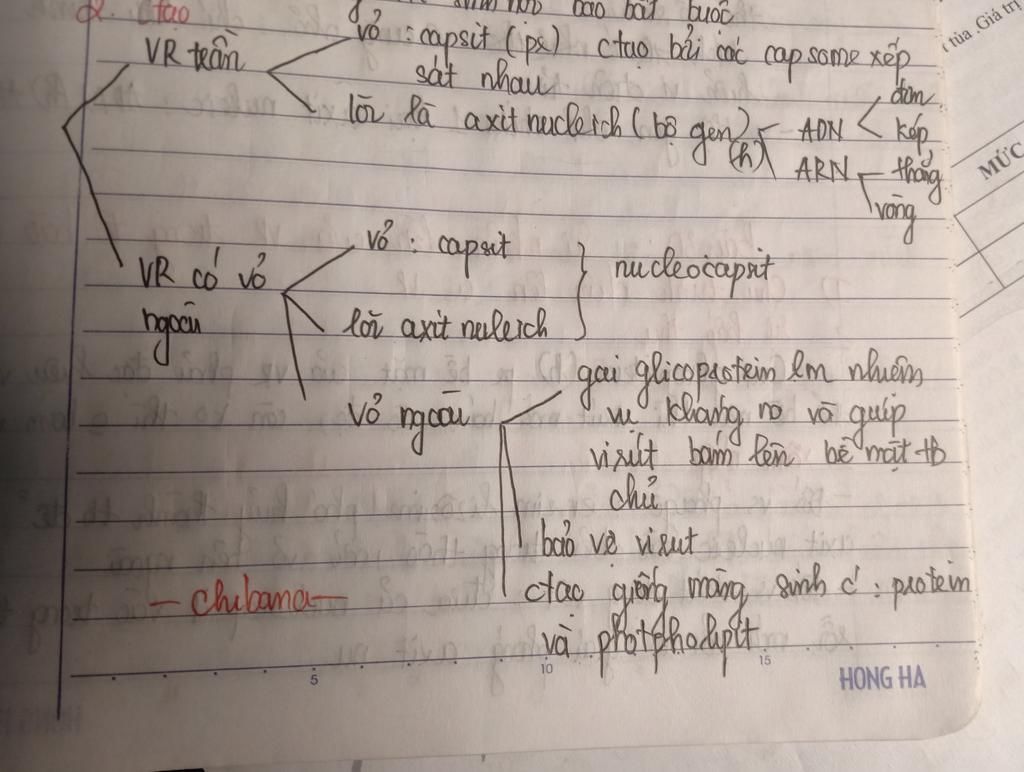 bào bắt buộc
2. ctạo
VR trần
vỏ : capsit (pr) ctạo bởi các capsome xếp
sát nhau
lõi là axit nucleich (bộ gen) (h)
ADN
đơn
kép
ARN
thẳng
vòng
VR có vỏ
ngoài
vỏ : capsit
lõi axit nuleich
nucleocapsit
vỏ ngoài
gai glicoprotein lm nhiệm
vụ kháng ng và giúp
virút bám lên bề mặt tb
chủ
bảo vệ virut
ctạo giống màng sinh c' : protein
và photpholipit
- chibana -
5
10
15
HONG HA
tủa. Giá trị
MỨC